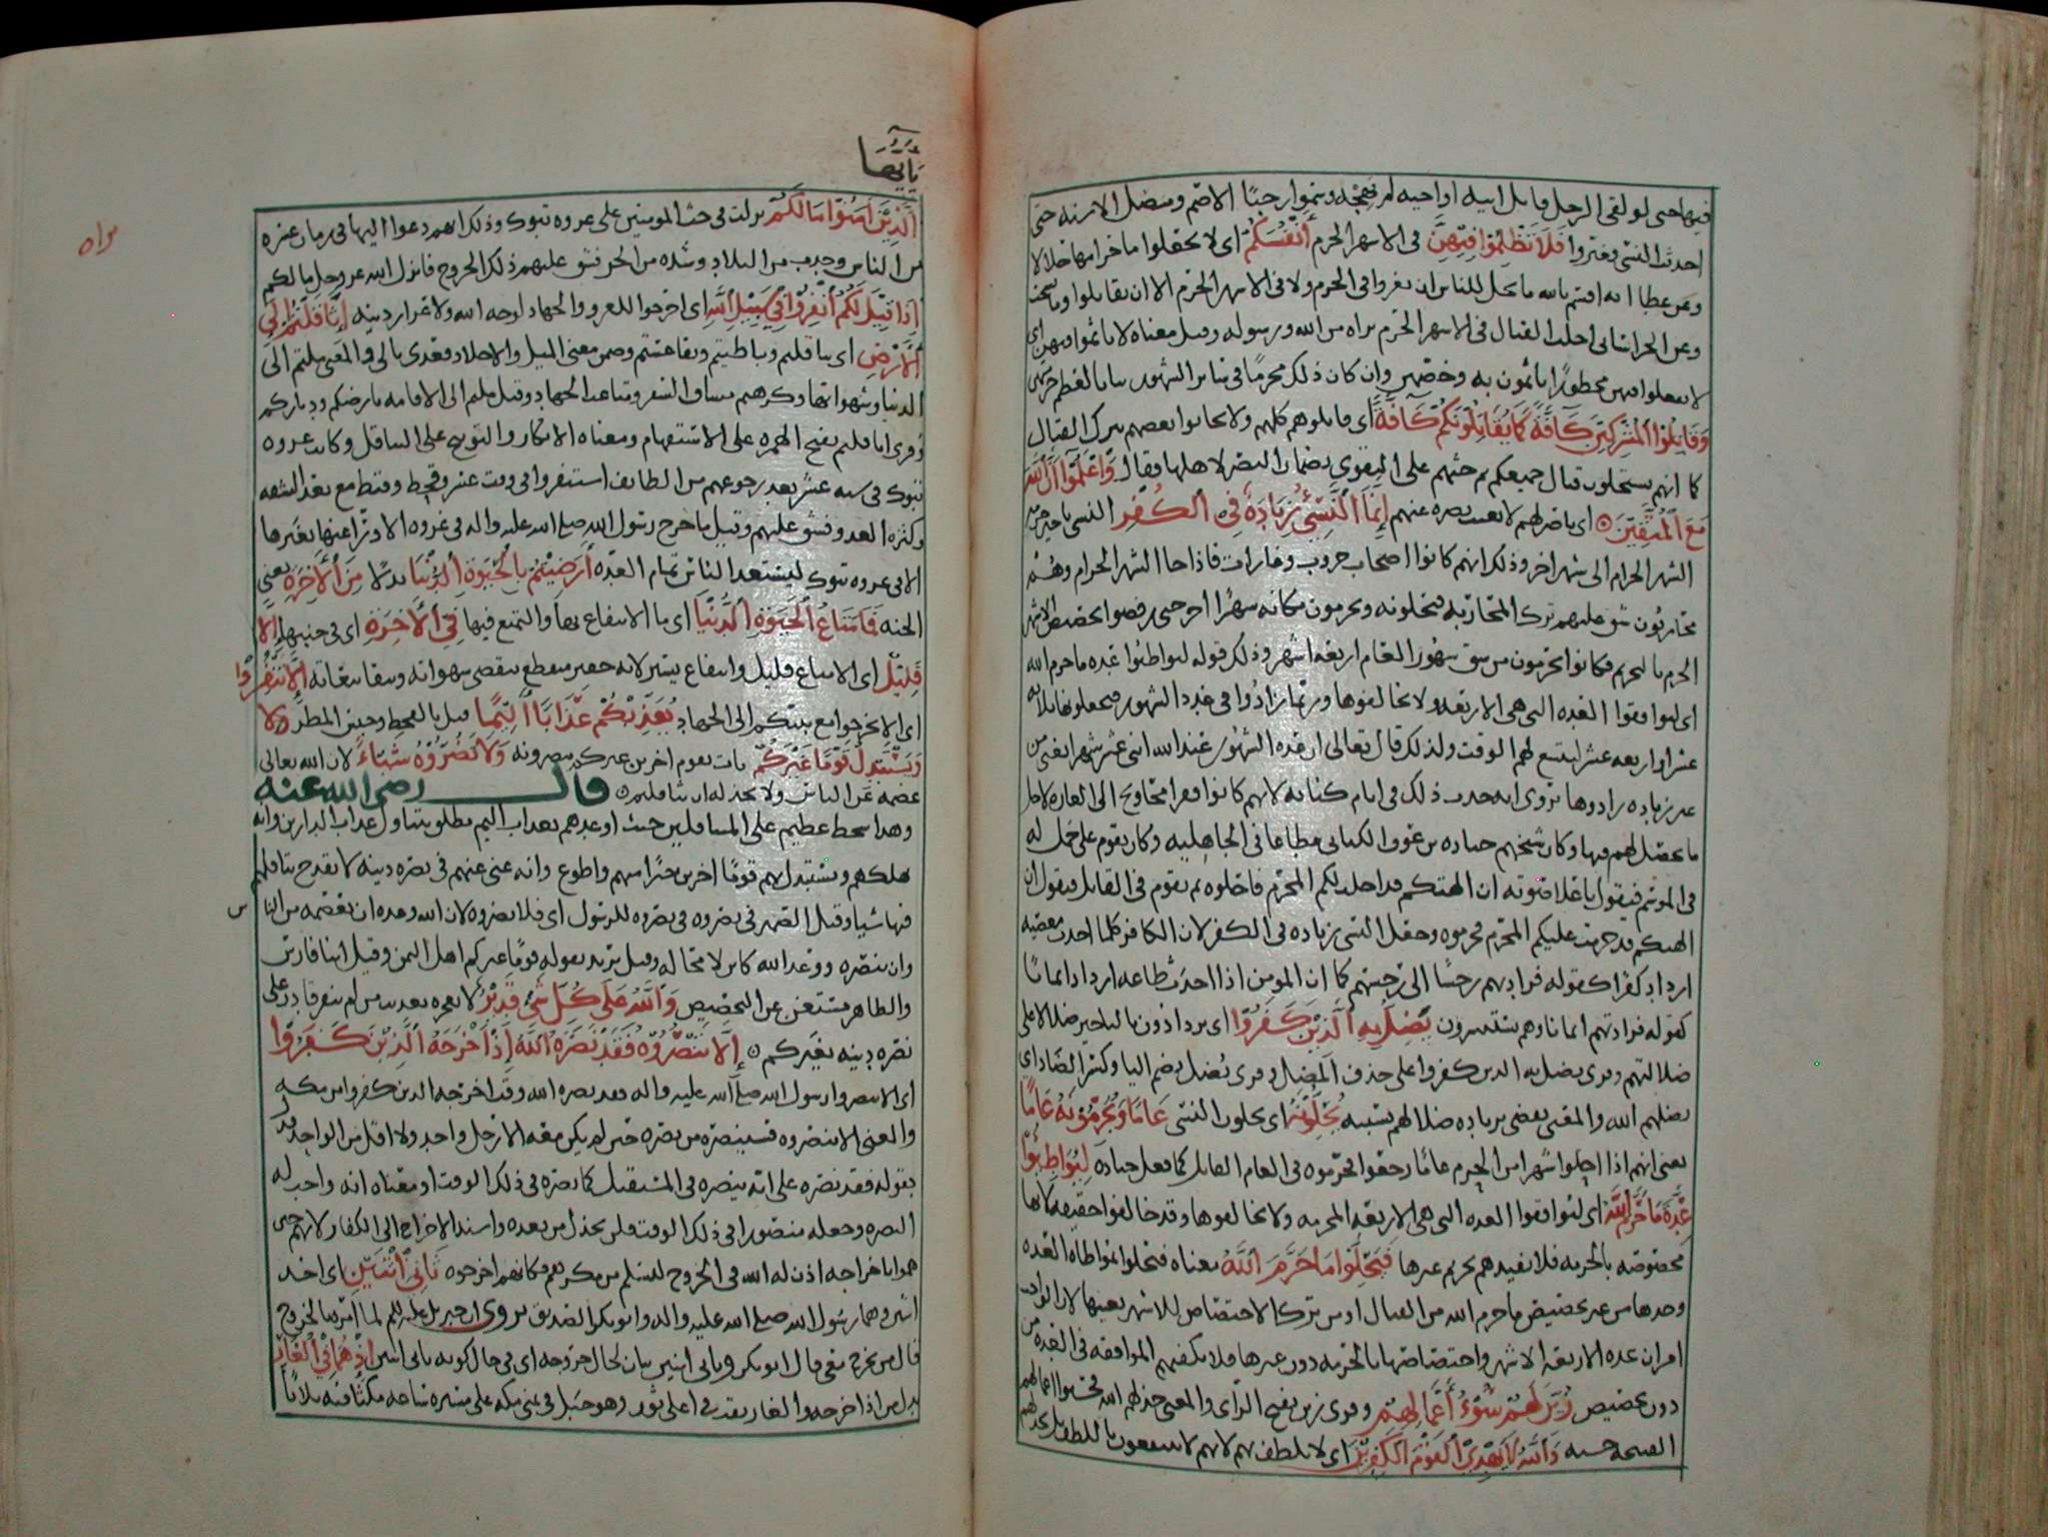 فيها حتى لو لقى الرجل قاتل ابيه او اخيه لم يهجه وسموا رجبا الاصم ومنصل الاسنة حتى
احدث النسي فغيروا فلا تظلموا فيهن في الاشهر الحرم أنفسكم اي لا تجعلوا ما حرامها حلالا
وعن عطا انه اقسم بالله ما يحل للناس ان يغزوا في الحرم ولا في الاشهر الحرم الا ان يقاتلوا وما نسخت
وعن الخراساني احلت القتال في الاشهر الحرم براه من الله ورسوله وقيل معناه لا تاثموا فيهن اي
لا تفعلوا فيهن محظورا تاثمون به وخصهن وان كان ذلك محرما في سائر الشهور
وقاتلوا المشركين كافة كما يقاتلونكم كافة اي قاتلوهم كلهم ولا تحابوا بعضهم بترك القتال
كما انهم يستحلون قتال جميعكم ثم حثهم على التقوى بضمان النصر لاهلها فقال واعلموا ان الله
مع المتقين اي ناصر لهم انما النسئ زيادة في الكفر النسي تاخير حرمة
الشهر الحرام الى شهر اخر وذلك انهم كانوا اصحاب حروب وغارات فاذا جا الشهر الحرام وهم
محاربون شق عليهم ترك المحاربة فيحلونه ويحرمون مكانه شهرا اخر حتى رفضوا تخصيص الاشهر
الحرم بالتحريم فكانوا يحرمون من شق شهور العام اربعة اشهر وذلك قوله ليواطئوا عدة ما حرم الله
اي ليوافقوا العده التي هي الاربعة ولا يخالفوها وربما زادوا في عدد الشهور فيجعلونها ثلاثة
عشر او اربعة عشر ليتسع لهم الوقت ولذلك قال تعالى ان عدة الشهور عند الله اثنى عشر شهرا يعني من
غير زياده زادوها يروى انه حدث ذلك في ايام كنانه لانهم كانوا فقرا محاويج الى الغاره
وكان جناده بن عوف الكناني مطاعا في الجاهليه وكان يقوم على جمل له
في الموسم فيقول باعلا صوته ان الهتكم قد احلت لكم المحرم فاحلوه ثم يقوم في القابل فيقول ان
الهتكم قد حرمت عليكم المحرم فحرموه وجعل النسي زياده في الكفر لان الكافر كلما احدث معصيه
ازداد كفرا كقوله فزادتهم رجسا الى رجسهم كما ان المومن اذا احدث طاعه ازداد ايمانا
كقوله فزادتهم ايمانا وهم يستبشرون يضل به الذين كفروا اي يزدادون بالتاخير ضلالا على
ضلالتهم وقرى يضل به الذين كفروا على حذف المضل وقرى يُضل بضم اليا وكسر الضاد اي
يضلهم الله والمعنى يقضي بزياده ضلالهم بسببه يحلونه اي يحلون النسي عاما ويحرمونه عاما
يعني انهم اذا احلوا شهرا من الحرم عاما رجعوا فحرموه في العام القابل كما فعل جناده ليواطئوا
عدة ما حرم الله اي ليوافقوا العده التي هي الاربعة المحرمه ولا يخالفوها وقد خالفوا حقيقه
مخصوصه بالحرمه فلا يفيدهم تحريم غيرها فيحلوا ما حرم الله معناه فيحلوا بمواطاه العده
وحدها من غير تخصيص ما حرم الله من القتال او من ترك الاختصاص للاشهر بعينها لان الواجب
امران عده الاربعه الاشهر واختصاصها بالحرمه دون غيرها فلا يكفيهم الموافقه في العده من
دون تخصيص زين لهم سوء أعمالهم وقرى زين بفتح الزاى والمعنى خذلهم الله فحسبوا اعمالهم
القبيحه حسنه والله لا يهدي القوم الكافرين اي لا يلطف بهم لانهم لا ينتفعون باللطف بل يخذلهم
يأيها
الذين امنوا ما لكم نزلت في حث المومنين على غزوه تبوك وذلك انهم دعوا اليها في زمان عسره
من الناس وجدب من البلاد وشده من الحر فشق عليهم ذلك الخروج فانزل الله عز وجل ما لكم
إذا قيل لكم انفروا في سبيل الله اي اخرجوا للغزو والجهاد لوجه الله ولاعزاز دينه إثاقلتم إلى
الارض اي تثاقلتم وتباطيتم وتقاعستم وضمن معنى الميل والاخلاد فعدى بالى والمعنى ملتم الى
الدنيا وشهواتها وكرهتم مشاق السفر ومتاعب الجهاد وقيل ملتم الى الاقامه بارضكم ودياركم
وقرى اثاقلتم بفتح الهمزه على الاستفهام ومعناه الانكار والتوبيخ على التثاقل وكانت غزوه
تبوك في سنه عشر بعد رجوعهم من الطايف استنفروا في وقت عسر وقحط وقيظ مع بعد الشقه
وكثره العدو فشق عليهم وقيل ما خرج رسول الله صلى الله عليه واله في غزوه الا ورّا عنها بغيرها
الا في غزوه تبوك ليستعد الناس تمام العدّه أرضيتم بالحيوة الدنيا بدلا من الآخرة يعني
الجنه فما متاع الحيوة الدنيا اي ما الانتفاع بها والتمتع فيها في الآخرة اي في جنبها إلا
قليل اي الامتاع قليل وانتفاع يسير لانه حقير منقطع إلا تنفروا
اي الا تخرجوا مع نبيكم الى الجهاد يعذبكم عذابا أليما قيل بالقحط وحبس المطر ولا
ويستبدل قوما غيركم يات بقوم اخرين غيركم ينصرونه ولا تضروه شيئا لان الله تعالى
عصمه عن الناس ولا يخذله ان تثاقلتم قال رضي الله عنه
وهذا سخط عظيم على المتثاقلين حيث اوعدهم بعذاب اليم مطلق يتناول عذاب الدارين وانه
يهلكهم ويستبدل بهم قوما اخرين خيرا منهم واطوع وانه غني عنهم في نصره دينه لا يقدح تثاقلهم
فيها شيا وقيل الضمير في تضروه للرسول اي فلا تضروه لان الله وعده ان يعصمه من الناس
وان ينصره ووعد الله كاين لا محاله وقيل يريد بقوله قوما غيركم اهل اليمن وقيل ابنا فارس
والظاهر مستغن عن التخصيص والله على كل شئ قدير لا يعجزه قادر على
نصره دينه بغيركم إلا تنصروه فقد نصره الله إذ أخرجه الذين كفروا
اي الا تنصروا رسول الله صلى الله عليه واله فقد نصره الله وقت اخرجه الذين كفروا من مكه
والمعنى الا تنصروه فسينصره من نصره حين لم يكن معه الا رجل واحد ولا اقل من الواحد فدل
بقوله فقد نصره على انه ينصره في المستقبل كما نصره في ذلك الوقت او معناه انه واجب له
النصره وجعله منصورا في ذلك الوقت فلن يخذل من بعده واسند الاخراج الى الكفار لانهم حين
هموا باخراجه اذن له الله في الخروج فكانهم اخرجوه ثاني اثنين اي احد
اثنين وهما رسول الله صلى الله عليه واله وابو بكر الصديق يروى ان جبريل عليه السلم لما امره بالخروج
قال من يخرج معي قال ابو بكر وثاني اثنين بيان لحال خروجه اي في حال كونه ثاني اثنين إذ هما في الغار
بدل من اذ اخرجه والغار نقب في اعلى ثور وهو جبل في يمنى مكه على مسيره ساعه مكثا فيه ثلاثا